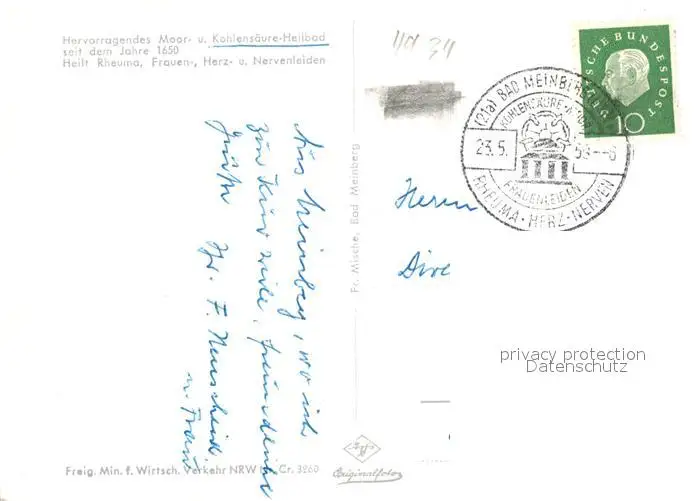 Hervorragendes Moor- u. Kohlensäure-Heilbad
seit dem Jahre 1650
Heilt Rheuma, Frauen-, Herz- u. Nervenleiden
Aus Meinberg, wo ich
zur Kur weile, freundliche
Grüße
F. Neuscheid
u. Frau
Freig. Min. f. Wirtsch. Verkehr NRW Cr. 3260
Fr. Mische, Bad Meinberg
Originalfoto
(21a) BAD MEINBERG
KOHLENSÄURE
23.5.
FRAUENLEIDEN
RHEUMA · HERZ · NERVEN
DEUTSCHE BUNDESPOST
10
Herrn
Dire
privacy protection
Datenschutz